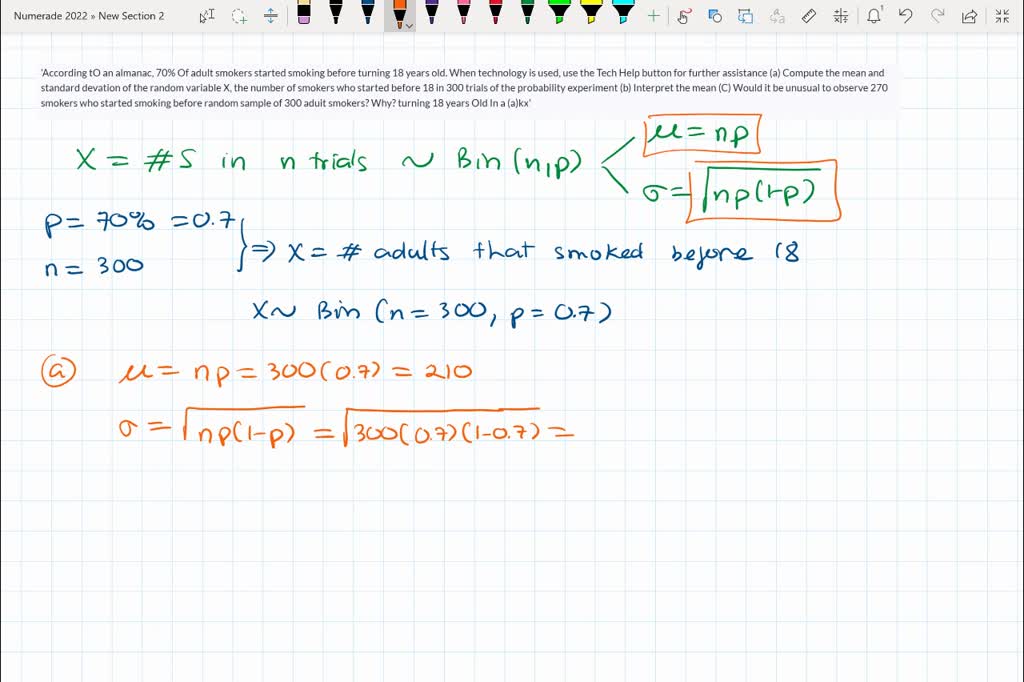 Numerade 2022 » New Section 2
'According tO an almanac, 70% Of adult smokers started smoking before turning 18 years old. When technology is used, use the Tech Help button for further assistance (a) Compute the mean and
standard devation of the random variable X, the number of smokers who started before 18 in 300 trials of the probability experiment (b) Interpret the mean (C) Would it be unusual to observe 270
smokers who started smoking before random sample of 300 aduit smokers? Why? turning 18 years Old In a (a)kx'
X = #S in n trials ~ Bin(n,p)
μ = np
σ = √np(1-p)
p = 70% = 0.7
n = 300
} ⇒ X = # adults that smoked before 18
X ~ Bin (n = 300, p = 0.7)
(a) μ = np = 300(0.7) = 210
σ = √np(1-p) = √300(0.7)(1-0.7) =